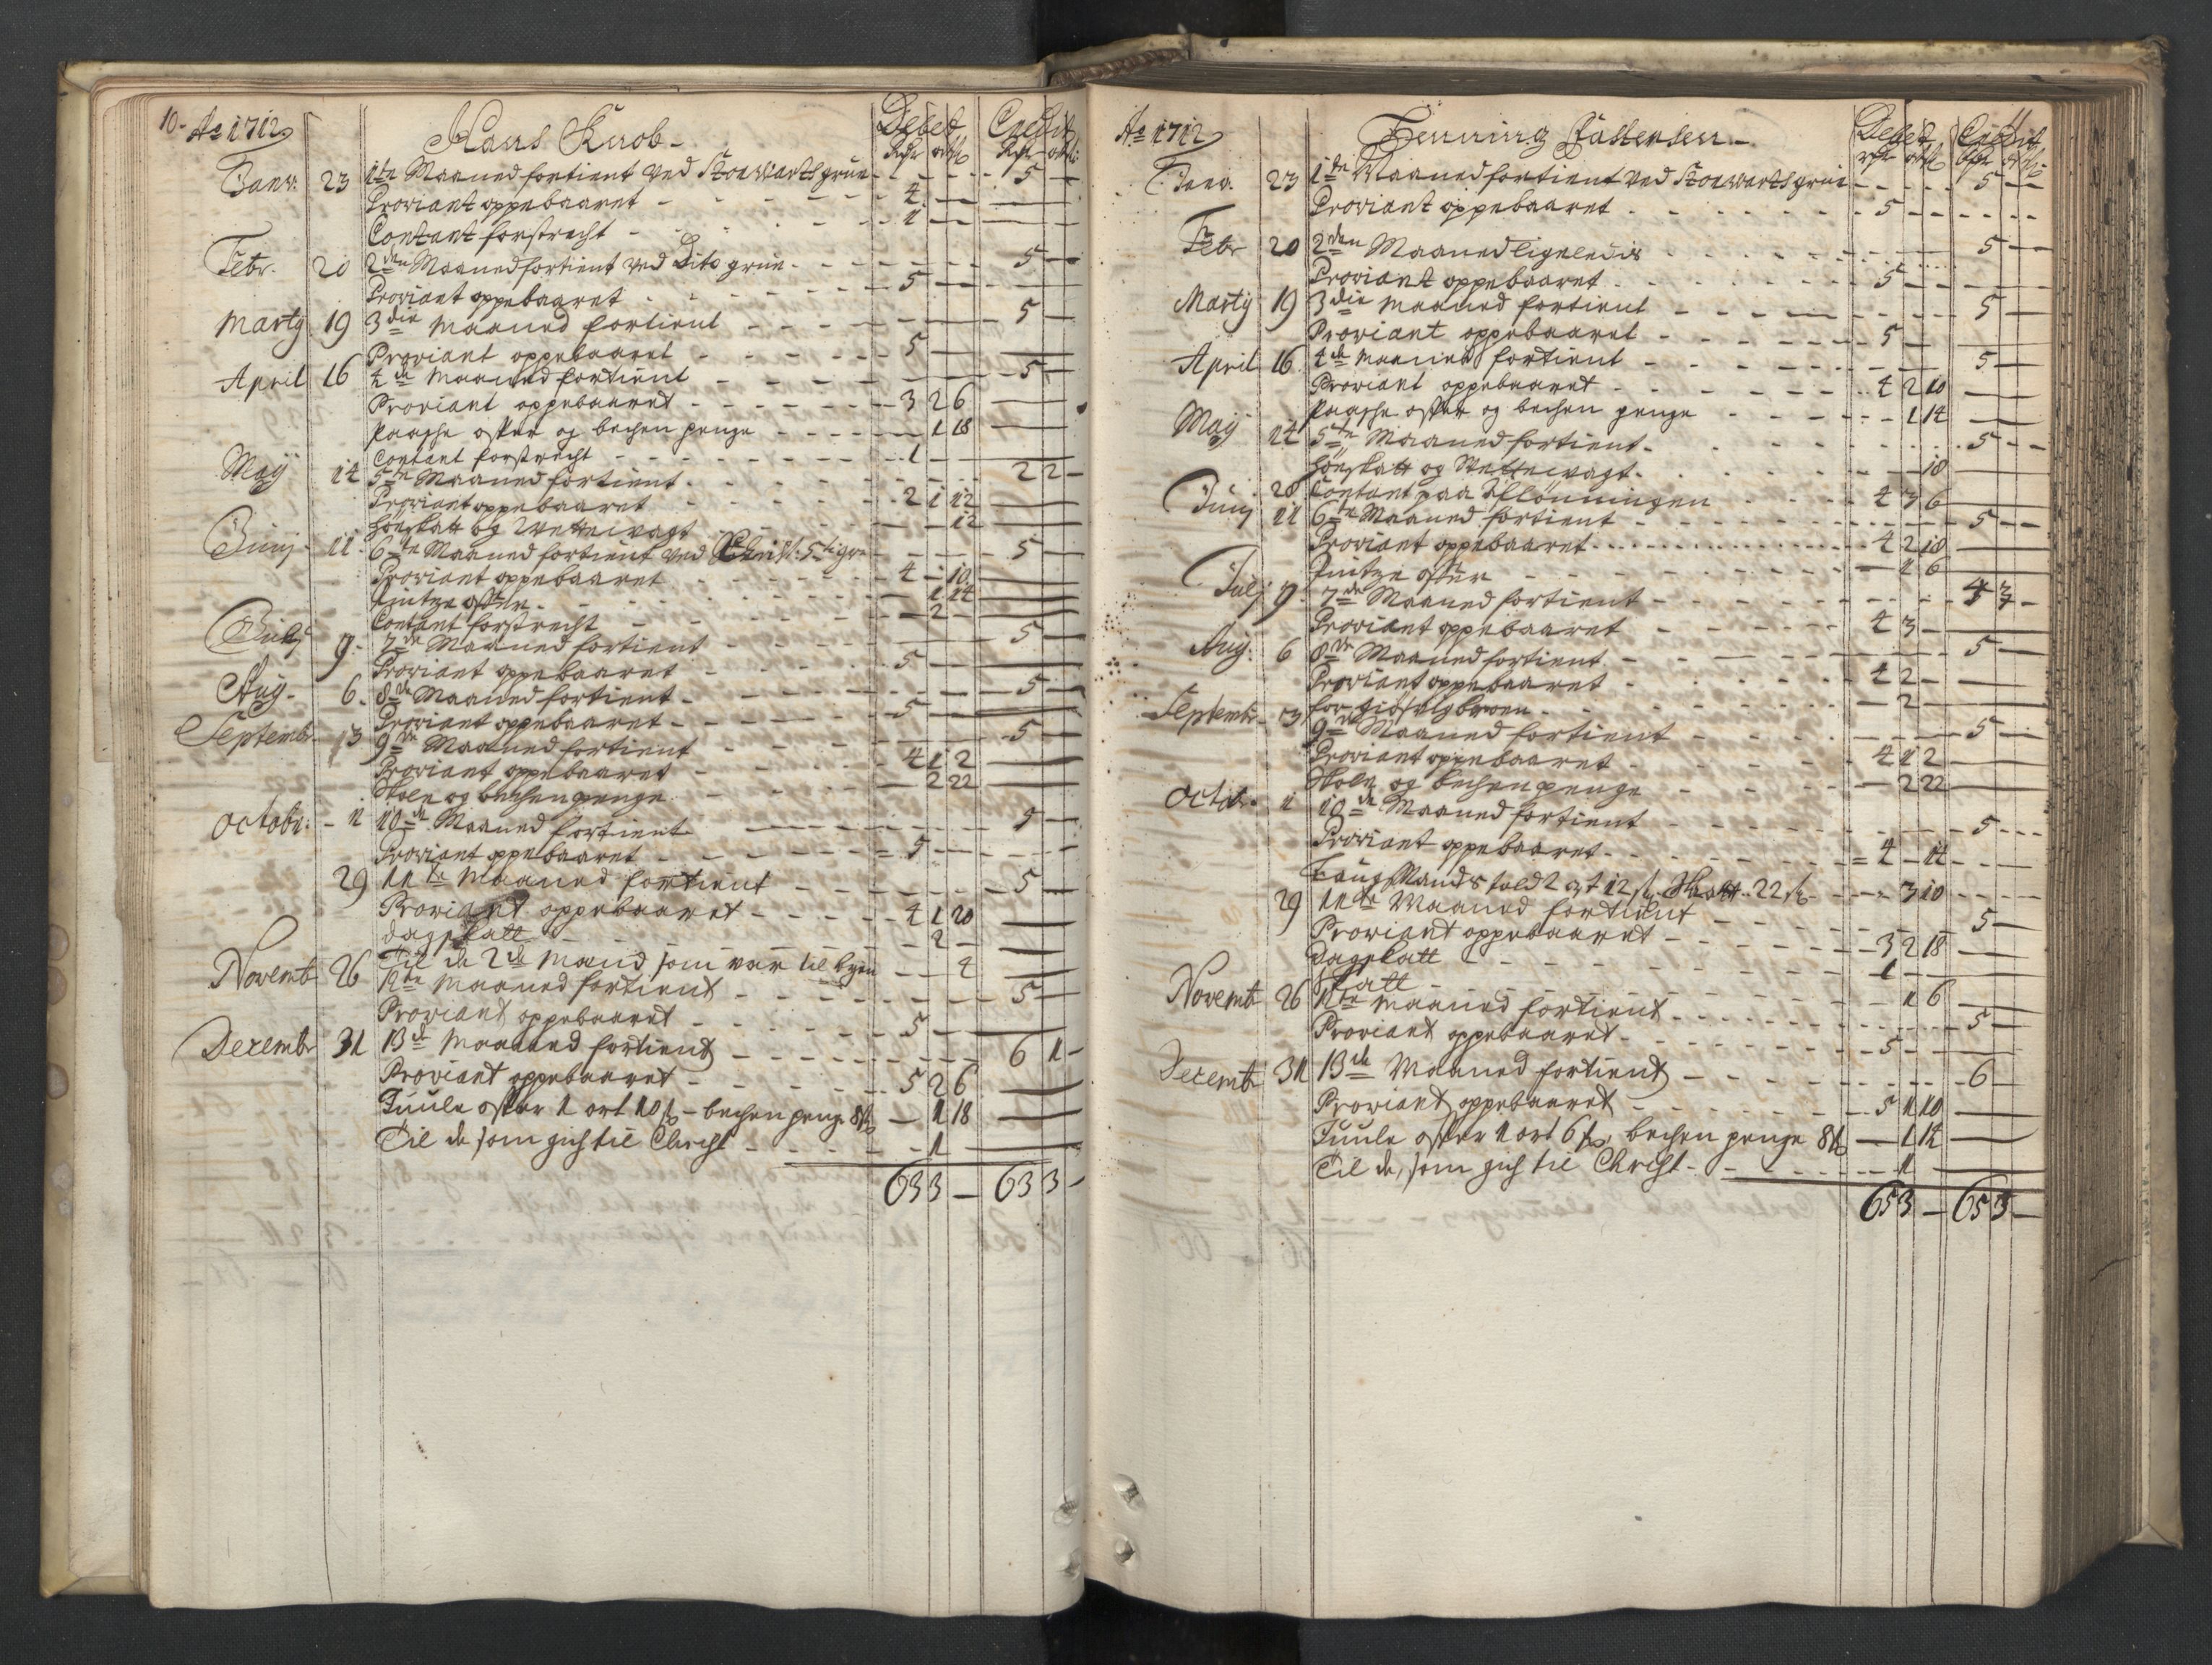 10. Ao 1712. Hans Knob. Debet Credit
Rdr ort ß Rdr ort ß
Janv: 23 1te Maaned fortient ved Storwartsgrue - - - 5 -
Proviant oppebaaret - - - 4 - -
Contant forstracht - - 1 - -
Febr. 20 2den Maaned fortient ved Dito grue - - - 5 -
Proviant oppebaaret - - - 5 - -
Marty 19 3die Maaned fortient - - - 5 -
Proviant oppebaaret - - - 5 -
April 16 4de Maaned fortient - - - 5 -
Proviant oppebaaret - - - 3 2 6
Paasche offer og bechen penge - - - 1 18
Contant forstracht - - - 1 -
Maij 14 5te Maaned fortient - - - 2 2 -
Proviant oppebaaret - - - 2 1 12
og - - 12
Junj 11. 6te Maaned fortient ved Christ: 5ti gr: - - - 5 -
Proviant oppebaaret - - - 4 - 10
offer - - - 1 14
Contant forstracht - - - 2 -
Julj 9. 7de Maaned fortient - - - 5 -
Proviant oppebaaret - - - 5 -
Aug. 6. 8de Maaned fortient - - - 5 -
Proviant oppebaaret - - - 5 -
Septembr. 3 9de Maaned fortient - - - 5 -
Proviant oppebaaret - - - 4 1 2
og bechenpenge - - 2 22
Octobr: - 1 10de Maaned fortient - - - 5 -
Proviant oppebaaret - - - 5 -
29 11te Maaned fortient - - - 5 -
Proviant oppebaaret - - - 4 1 20
dagskatt - - - 2 -
Til de 2de Mænd som var til byen - - 4
Novembr 26 12te Maaned fortient - - - 5 -
Proviant oppebaaret - - - 5 -
Decembr 31 13de Maaned fortient - - - 6 1 -
Proviant oppebaaret - - - 5 2 6
Juule offer 1 ort 10 ß - bechen penge 8 ß - 1 18
Til de som gich til Christ - - - 1 -
63 3 - 63 3 -
11
Ao 1712 Henning Debet Credit
Rdr ort ß Rdr ort ß
Janv. 23 1te Maaned fortient ved Storwartsgrue - - - 5 - -
Proviant oppebaaret - - - 5 - -
Febr 20 2den Maaned ligeledis - - - 5 - -
Proviant oppebaaret - - - 5 - -
Martij 19 3die Maaned fortient - - - 5 -
Proviant oppebaaret - - - 5 -
April 16. 4de Maaned fortient - - - 5 -
Proviant oppebaaret - - - 4 2 10
Paasche offer og bechen penge - - - 1 14
Maij 14 5te Maaned fortient - - - 5 - -
og - - 18
28 Contant paa Aflønningen - - - 4 3 6
Junj 11 6te Maaned fortient - - - 5 - -
Proviant oppebaaret - - - 4 2 18
offer - - - 1 6
Julj 9. 7de Maaned fortient - - - 4 3 -
Proviant oppebaaret - - - 4 3 -
Aug. 6 8de Maaned fortient - - - 5 -
Proviant oppebaaret - - - 4 2 -
for - - - 2 -
Septembr. 3 9de Maaned fortient - - - 5 -
Proviant oppebaaret - - - 4 1 2
og bechenpenge - - 2 22
Octobr. 1 10de Maaned fortient - - - 5 - -
Proviant oppebaaret - - - 4 - 14
Mands told 2 ort 12 ß, Skatt .. 22 ß - - 3 10
29 11te Maaned fortient - - - 5 -
Proviant oppebaaret - - - 3 2 18
Dagskatt - - - 1 -
Skatt - - - 1 6
Novembr 26 12te Maaned fortient - - - 5 -
Proviant oppebaaret - - - 5 -
Decembr 31 13de Maaned fortient - - - 6 -
Proviant oppebaaret - - - 5 1 10
Juule offer 1 ort 6 ß, bechen penge 8 ß - 1 14
Til de, som gich til Christ - - - 1 -
65 3 - 65 3 -